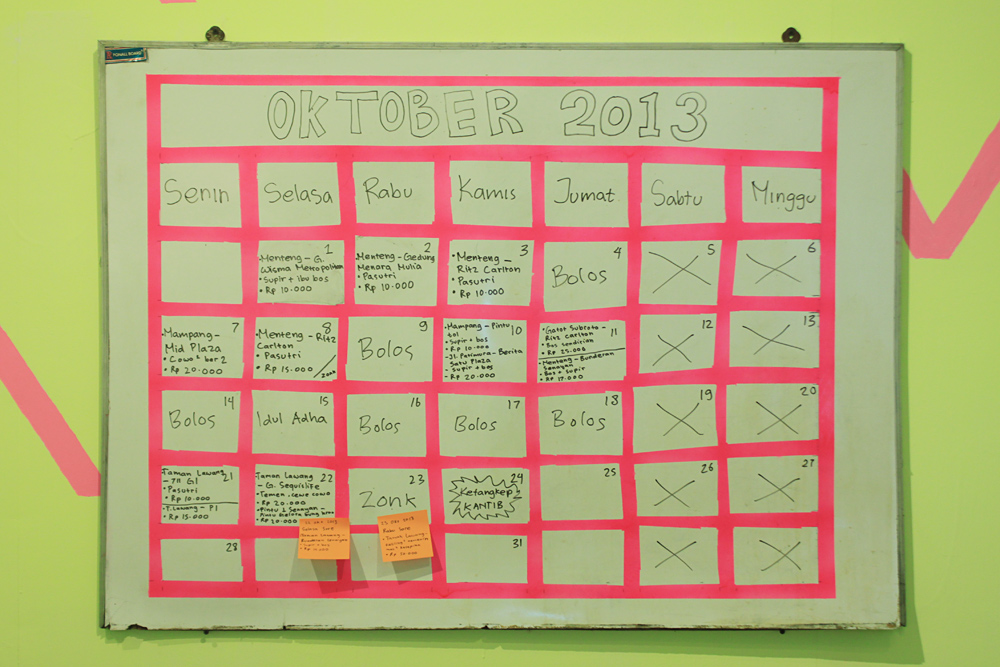 OKTOBER 2013
Senin
Selasa
Rabu
Kamis
Jumat
Sabtu
Minggu
1
• Menteng – G.
Wisma Metropolitan
• Supir + ibu bos
• Rp 10.000
2
Menteng – Gedung
Menara Mulia
• Pasutri
• Rp 10.000
3
• Menteng –
Ritz Carlton
• Pasutri
• Rp 10.000
4
Bolos
5
6
7
• Mampang –
Mid Plaza
• Cowok ber 2
• Rp 20.000
8
• Menteng – Ritz
Carlton
• Pasutri
• Rp 15.000
9
Bolos
10
• Mampang – Pintu
tol
• Supir + bos
• Rp 10.000
– Jl. Patimura – Berita
Satu Plaza
– Supir + bos
– Rp 20.000
11
• Gatot Subroto –
Ritz Carlton
• Bos sendirian
• Rp 25.000
• Menteng – Bunderan
Senayan
• Bos + Supir
• Rp 17.000
12
13
14
Bolos
15
Idul Adha
16
Bolos
17
Bolos
18
Bolos
19
20
21
Taman Lawang
– 711 G1
• Pasutri
• Rp 10.000
• T. Lawang – P1
• Rp 15.000
22
Taman Lawang
– G. Sequislife
• Temen, cewe cowo
• Rp 20.000
• Pintu 1 Senayan –
• Rp 20.000
23
Zonk
24
Ketangkep
KANTIB
25
26
27
28
31
Rabu Sore